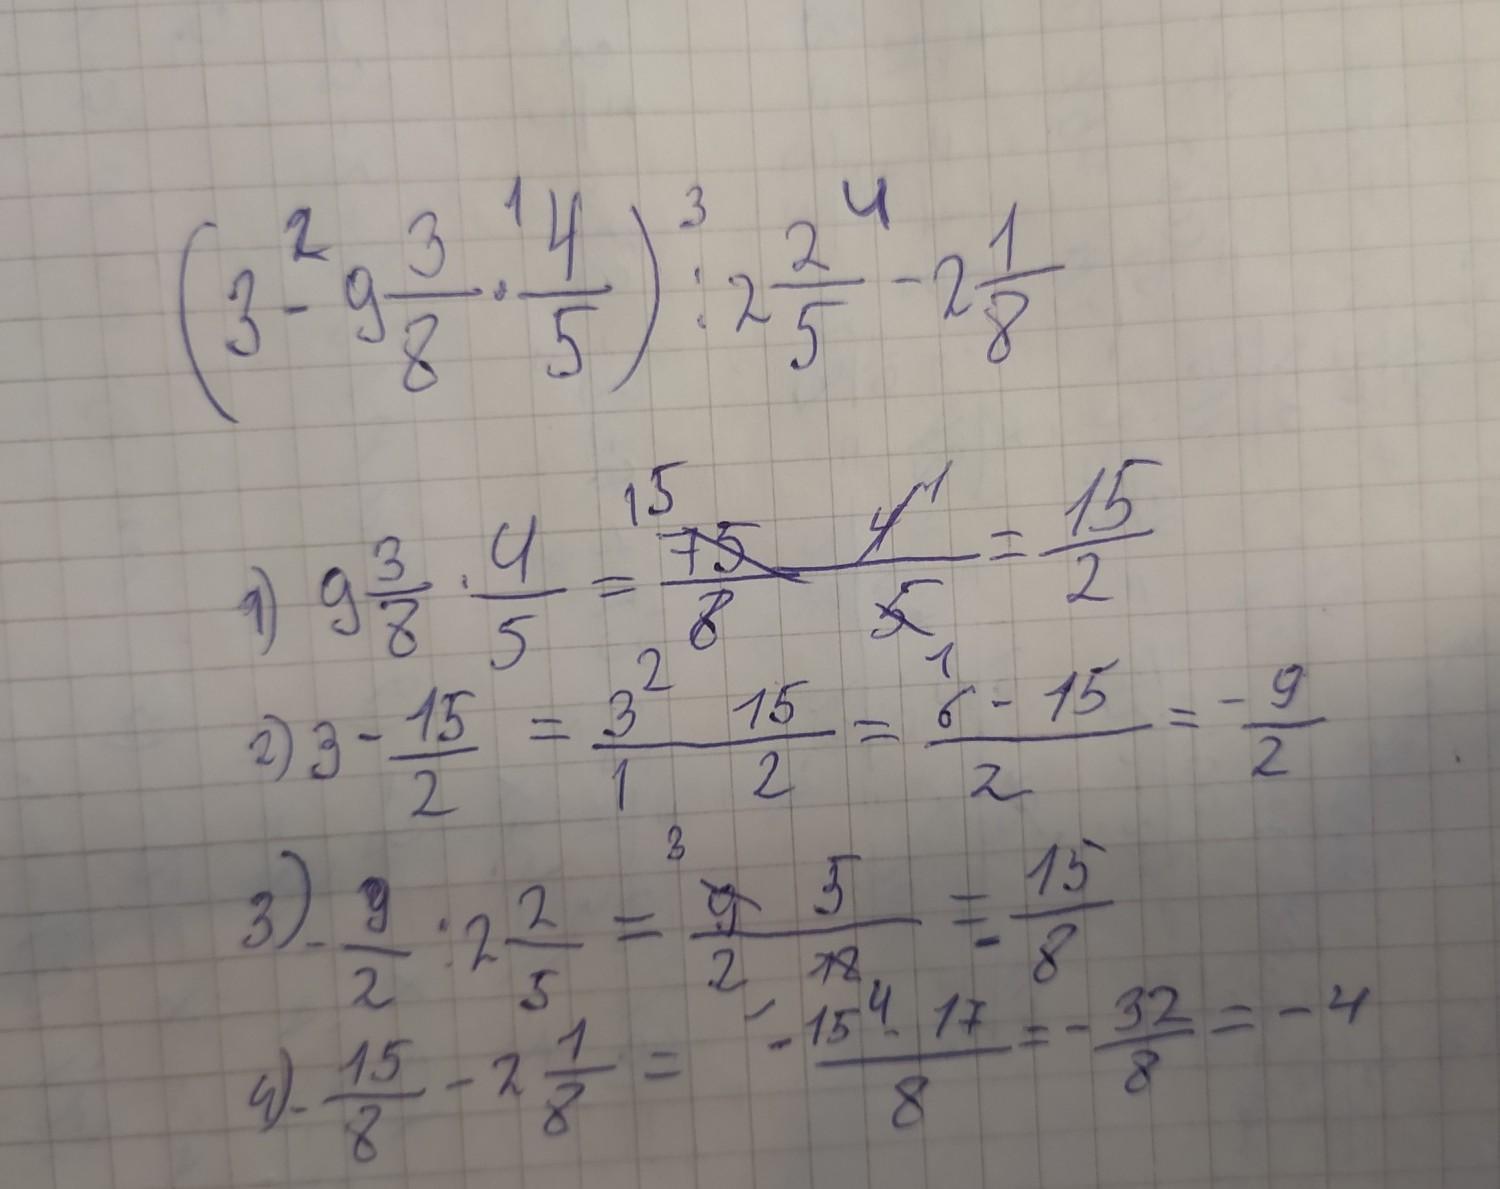 (3 - 9 3/8 · 4/5) : 2 2/5 - 2 1/8
1) 9 3/8 · 4/5 = 75/8 4/5 = 15/2
2) 3 - 15/2 = 3/1 15/2 = 6 - 15/2 = - 9/2
3) - 9/2 : 2 2/5 = 9/2 5/12 = - 15/8
4) - 15/8 - 2 1/8 = - 15 - 17/8 = - 32/8 = - 4